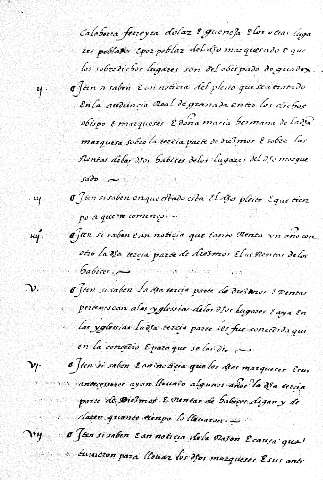 Calahorra ferreyra dolar E gueneja E los otros luga
res poblados E por poblar del dho marquesado E que
los sobredichos lugares son del obispado de guadix
ij. Iten si saben E an noticia del pleito que se a tratado
En la audiencia Real de granada entre los dichos
obispo E marqueses E doña maria hermana de la dha
marquesa sobre la tercia parte de diezmos E sobre las
Rentas de los habices de los lugares del dho marque
sado
iij Iten si saben en que estado esta El dho pleito E que tien
po a que se començo
iiij Iten si saben E an noticia que tanto Renta un año con
otro la dha tercia parte de diezmos E las Rentas de los
habices
V. Iten si saben la dha tercia parte de diezmos E Rentas
pertenescan a las yglesias de los dhos lugares E aya En
las yglesias la dha tercia parte les fue concedida que
en la concesio E para que se les dio
VI. Iten si saben E an noticia que los dhos marqueses E sus
antecesores ayan llevado algunos años la dha tercia
parte de diezmos E Rentas de habices digan y de
claren quanto tienpo lo llevaron
VII Iten si saben E an noticia de la Razon E causa que
tuvieron para llevar los dhos marqueses E sus ante